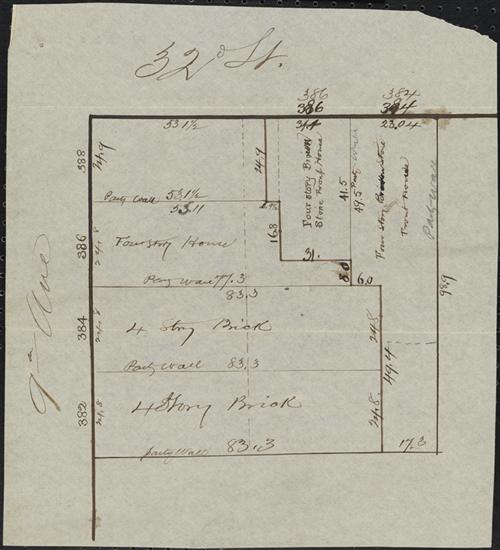 32d St.
386 384
386 384
53 1½
24.9
24.9
388
Party Wall 53.1½
53.11
Four story House
24.8
386
Party Wall 77.3
83.3
4 Story Brick
24.8
384
Party Wall 83.3
4 Story Brick
24.8
382
Party Wall 83.3
9th Ave
Four story Brown
Stone Front House
16.8
31.
41.5
49.5 Party Wall
8.0
6.0
23.04
Four story Brownstone
Front House
Party Wall
98.9
24.8
49.4
24.8
17.3